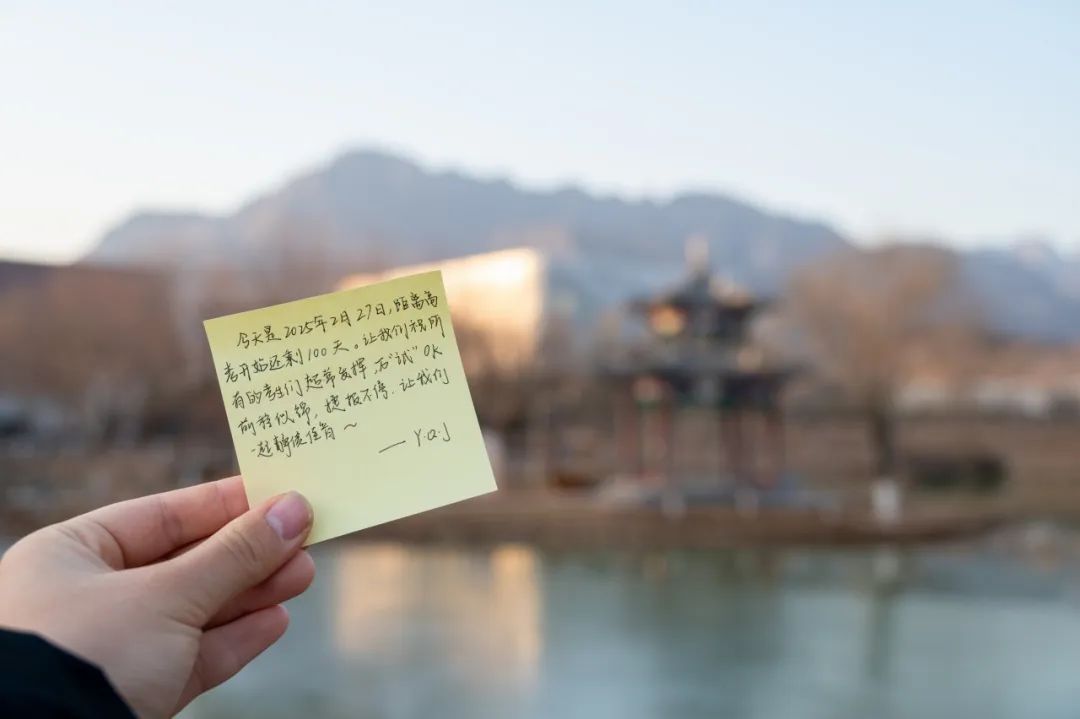 今天是2025年2月27日,距离高
考开始还剩100天。让我们祝所
有的考生们超常发挥,百“试”OK
前程似锦,捷报不停.让我们
一起静候佳音~
—— Y.Q.J